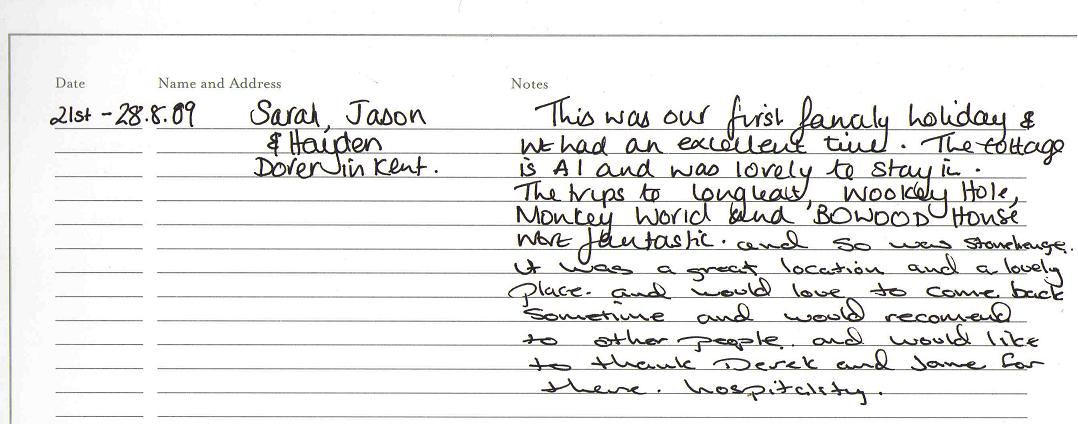 Date Name and Address Notes
21st - 28.8.09 Sarah, Jason This was our first famaly holiday &
& Hayden we had an excellent time. The cottage
Dover in Kent. is A1 and was lovely to stay in.
The trips to longleat, Wookey Hole,
Monkey World and BOWOOD House
were fantastic. and so was stonehenge.
it was a great location and a lovely
place. and would love to come back
sometime and would recomend
to other people. and would like
to thank Derek and Jane for
there. hospitality.